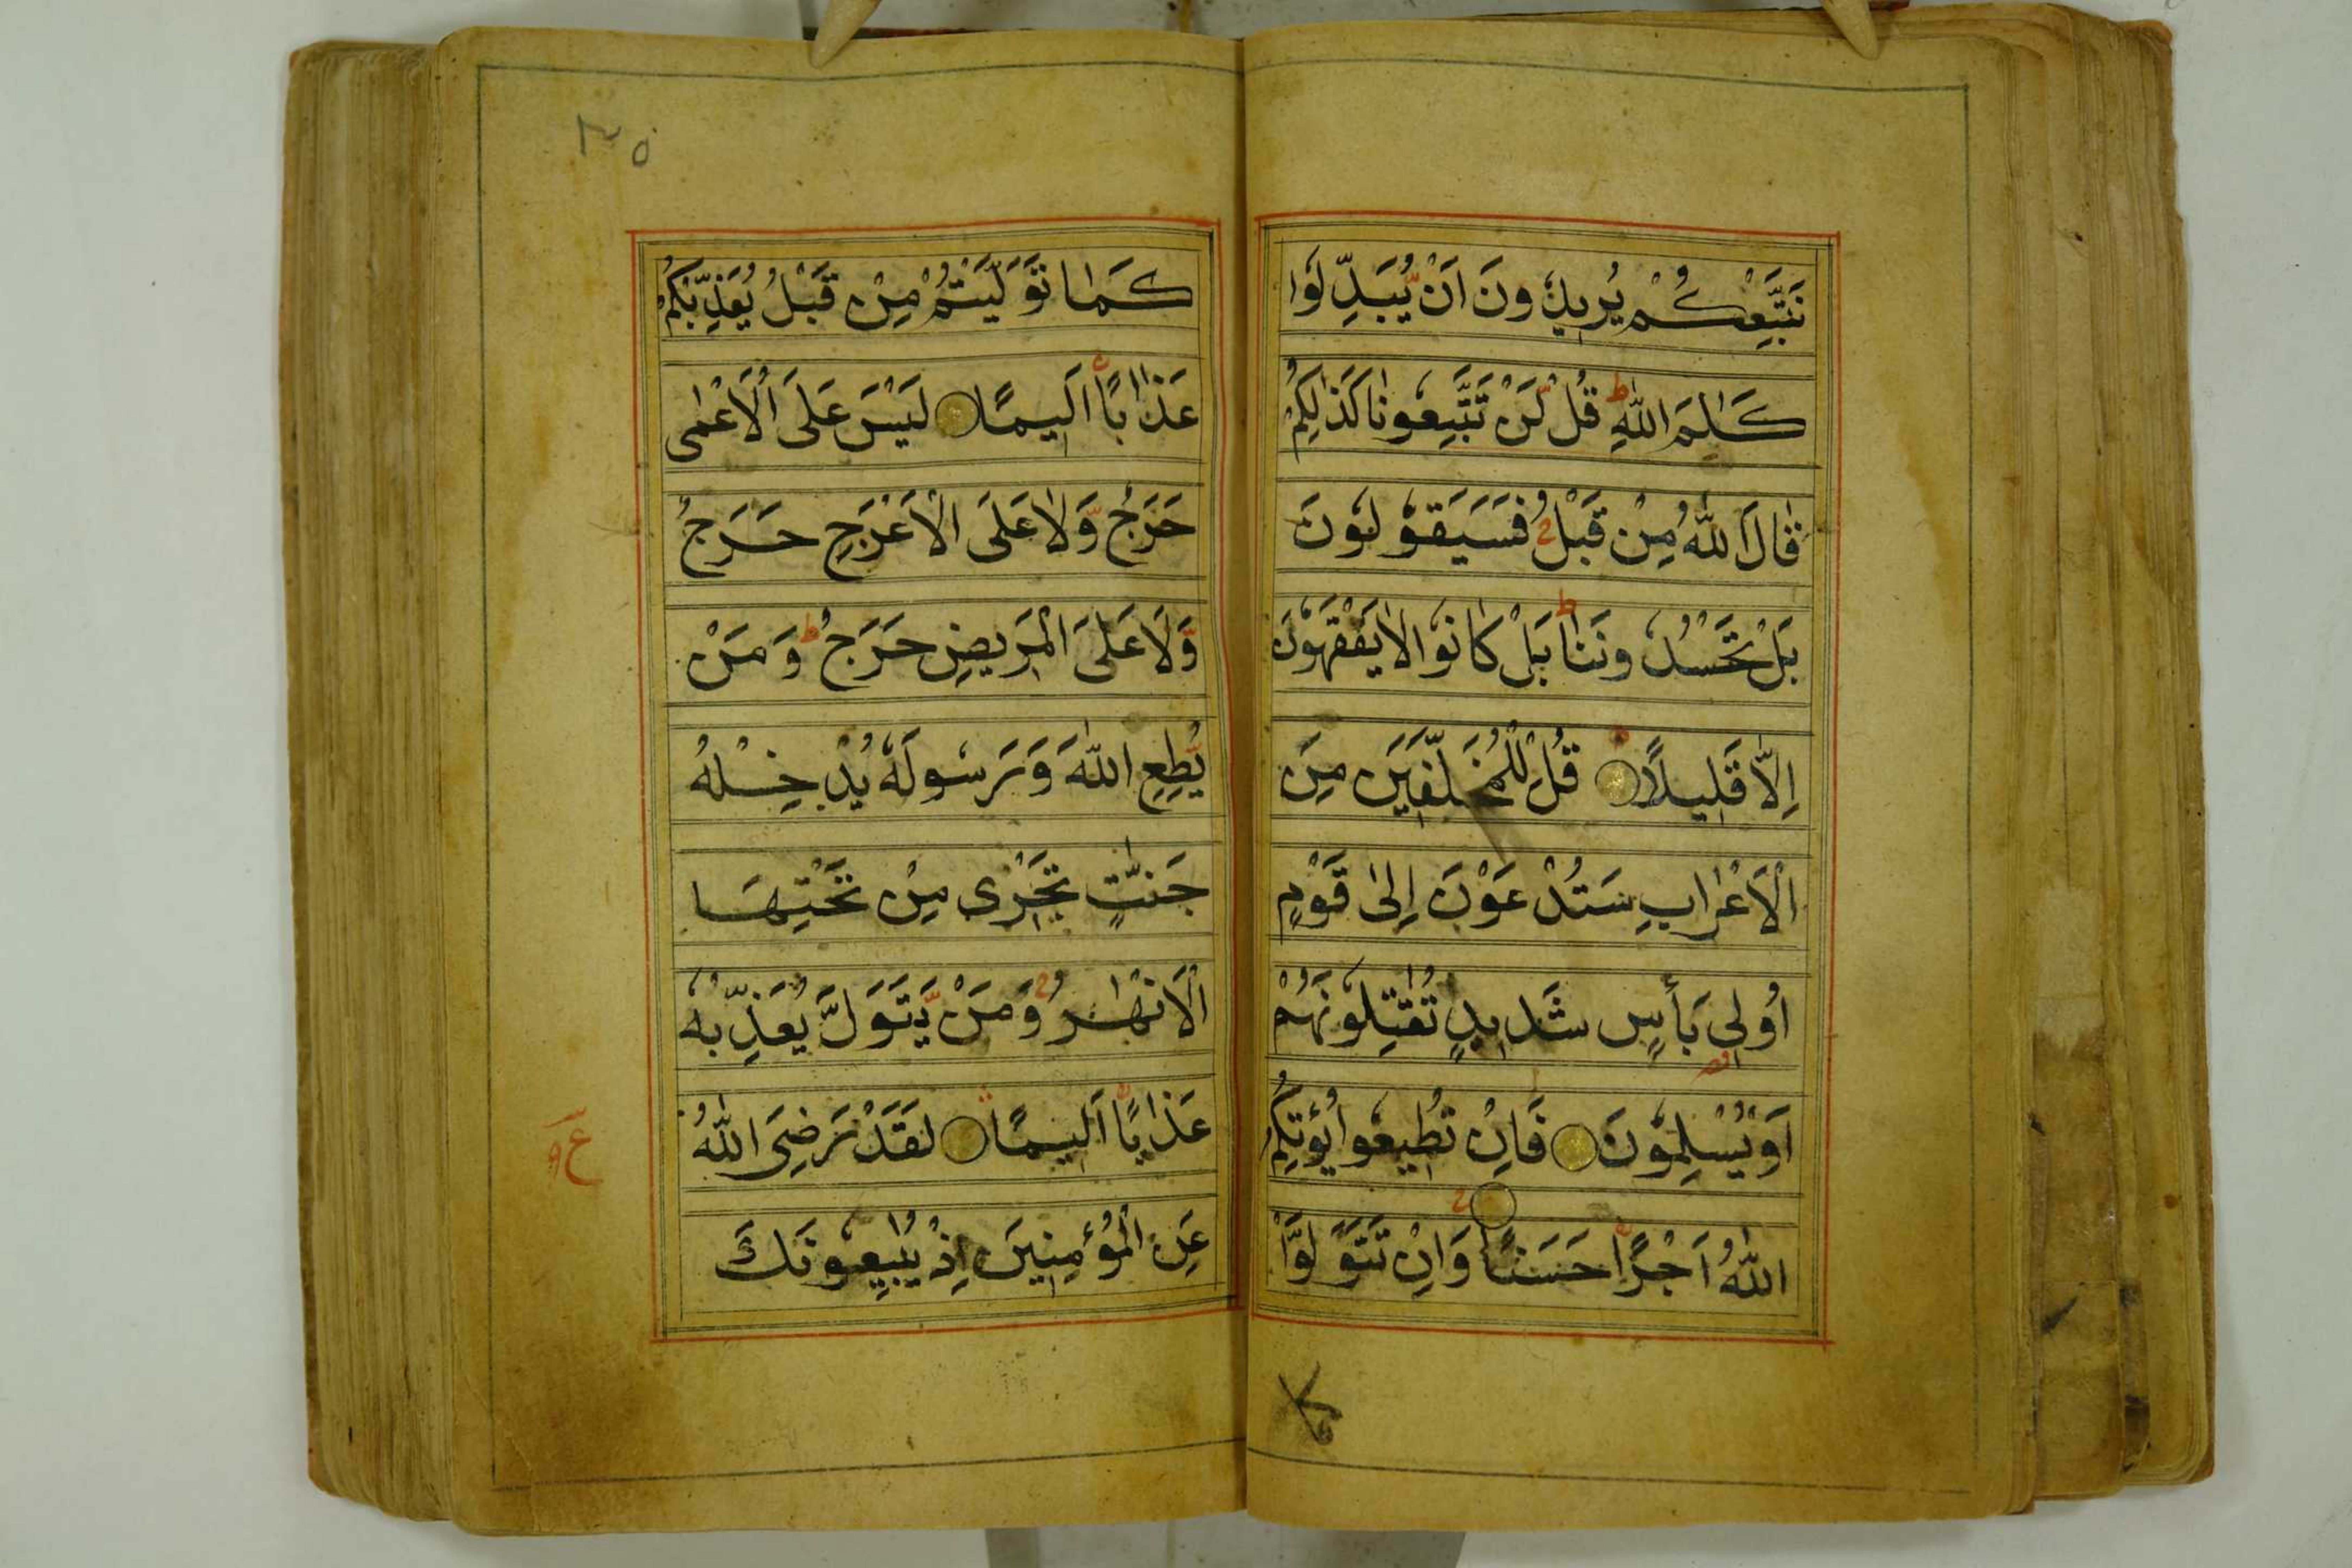 نَتَّبِعْكُمْ يُرِيدُونَ اَنْ يُّبَدِّلُوا
كَلٰمَ اللّٰهِ ط قُلْ لَّنْ تَتَّبِعُونَا كَذٰلِكُمْ
قَالَ اللّٰهُ مِنْ قَبْلُ فَسَيَقُولُونَ
بَلْ تَحْسُدُونَنَا ط بَلْ كَانُوا لَا يَفْقَهُونَ
اِلَّا قَلِيلًا قُلْ لِلْمُخَلَّفِينَ مِنَ
الْاَعْرَابِ سَتُدْعَوْنَ اِلٰى قَوْمٍ
اُولِى بَأْسٍ شَدِيدٍ تُقٰتِلُونَهُمْ
اَوْ يُسْلِمُونَ فَاِنْ تُطِيعُوا يُؤْتِكُمُ
اللّٰهُ اَجْرًا حَسَنًا وَاِنْ تَتَوَلَّوْا
كَمَا تَوَلَّيْتُمْ مِنْ قَبْلُ يُعَذِّبْكُمْ
عَذَابًا اَلِيمًا لَيْسَ عَلَى الْاَعْمٰى
حَرَجٌ وَّلَا عَلَى الْاَعْرَجِ حَرَجٌ
وَّلَا عَلَى الْمَرِيضِ حَرَجٌ ط وَمَنْ
يُّطِعِ اللّٰهَ وَرَسُولَهُ يُدْخِلْهُ
جَنّٰتٍ تَجْرِى مِنْ تَحْتِهَا
الْاَنْهٰرُ وَمَنْ يَّتَوَلَّ يُعَذِّبْهُ
عَذَابًا اَلِيمًا لَقَدْ رَضِىَ اللّٰهُ
عَنِ الْمُؤْمِنِينَ اِذْ يُبَايِعُونَكَ